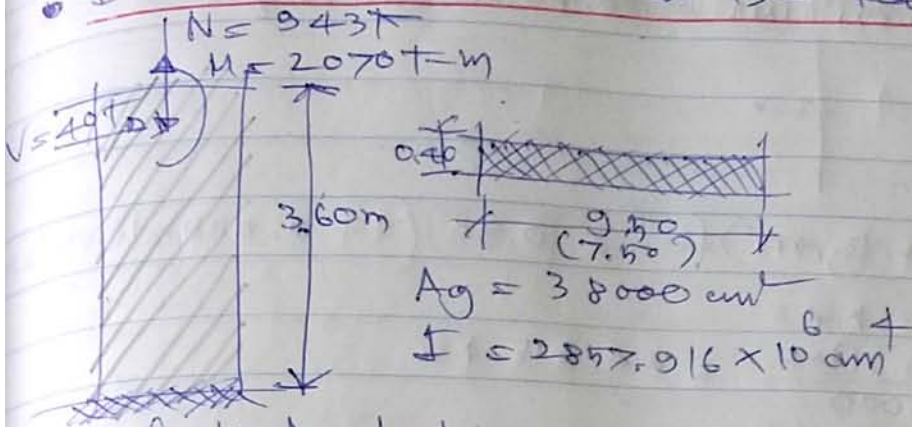 N = 943T
M = 2070 T-m
V = 40T
0.40
3.60m
9.50
(7.50)
Ag = 38000 cm²
I = 2857.916 × 10⁶ cm⁴